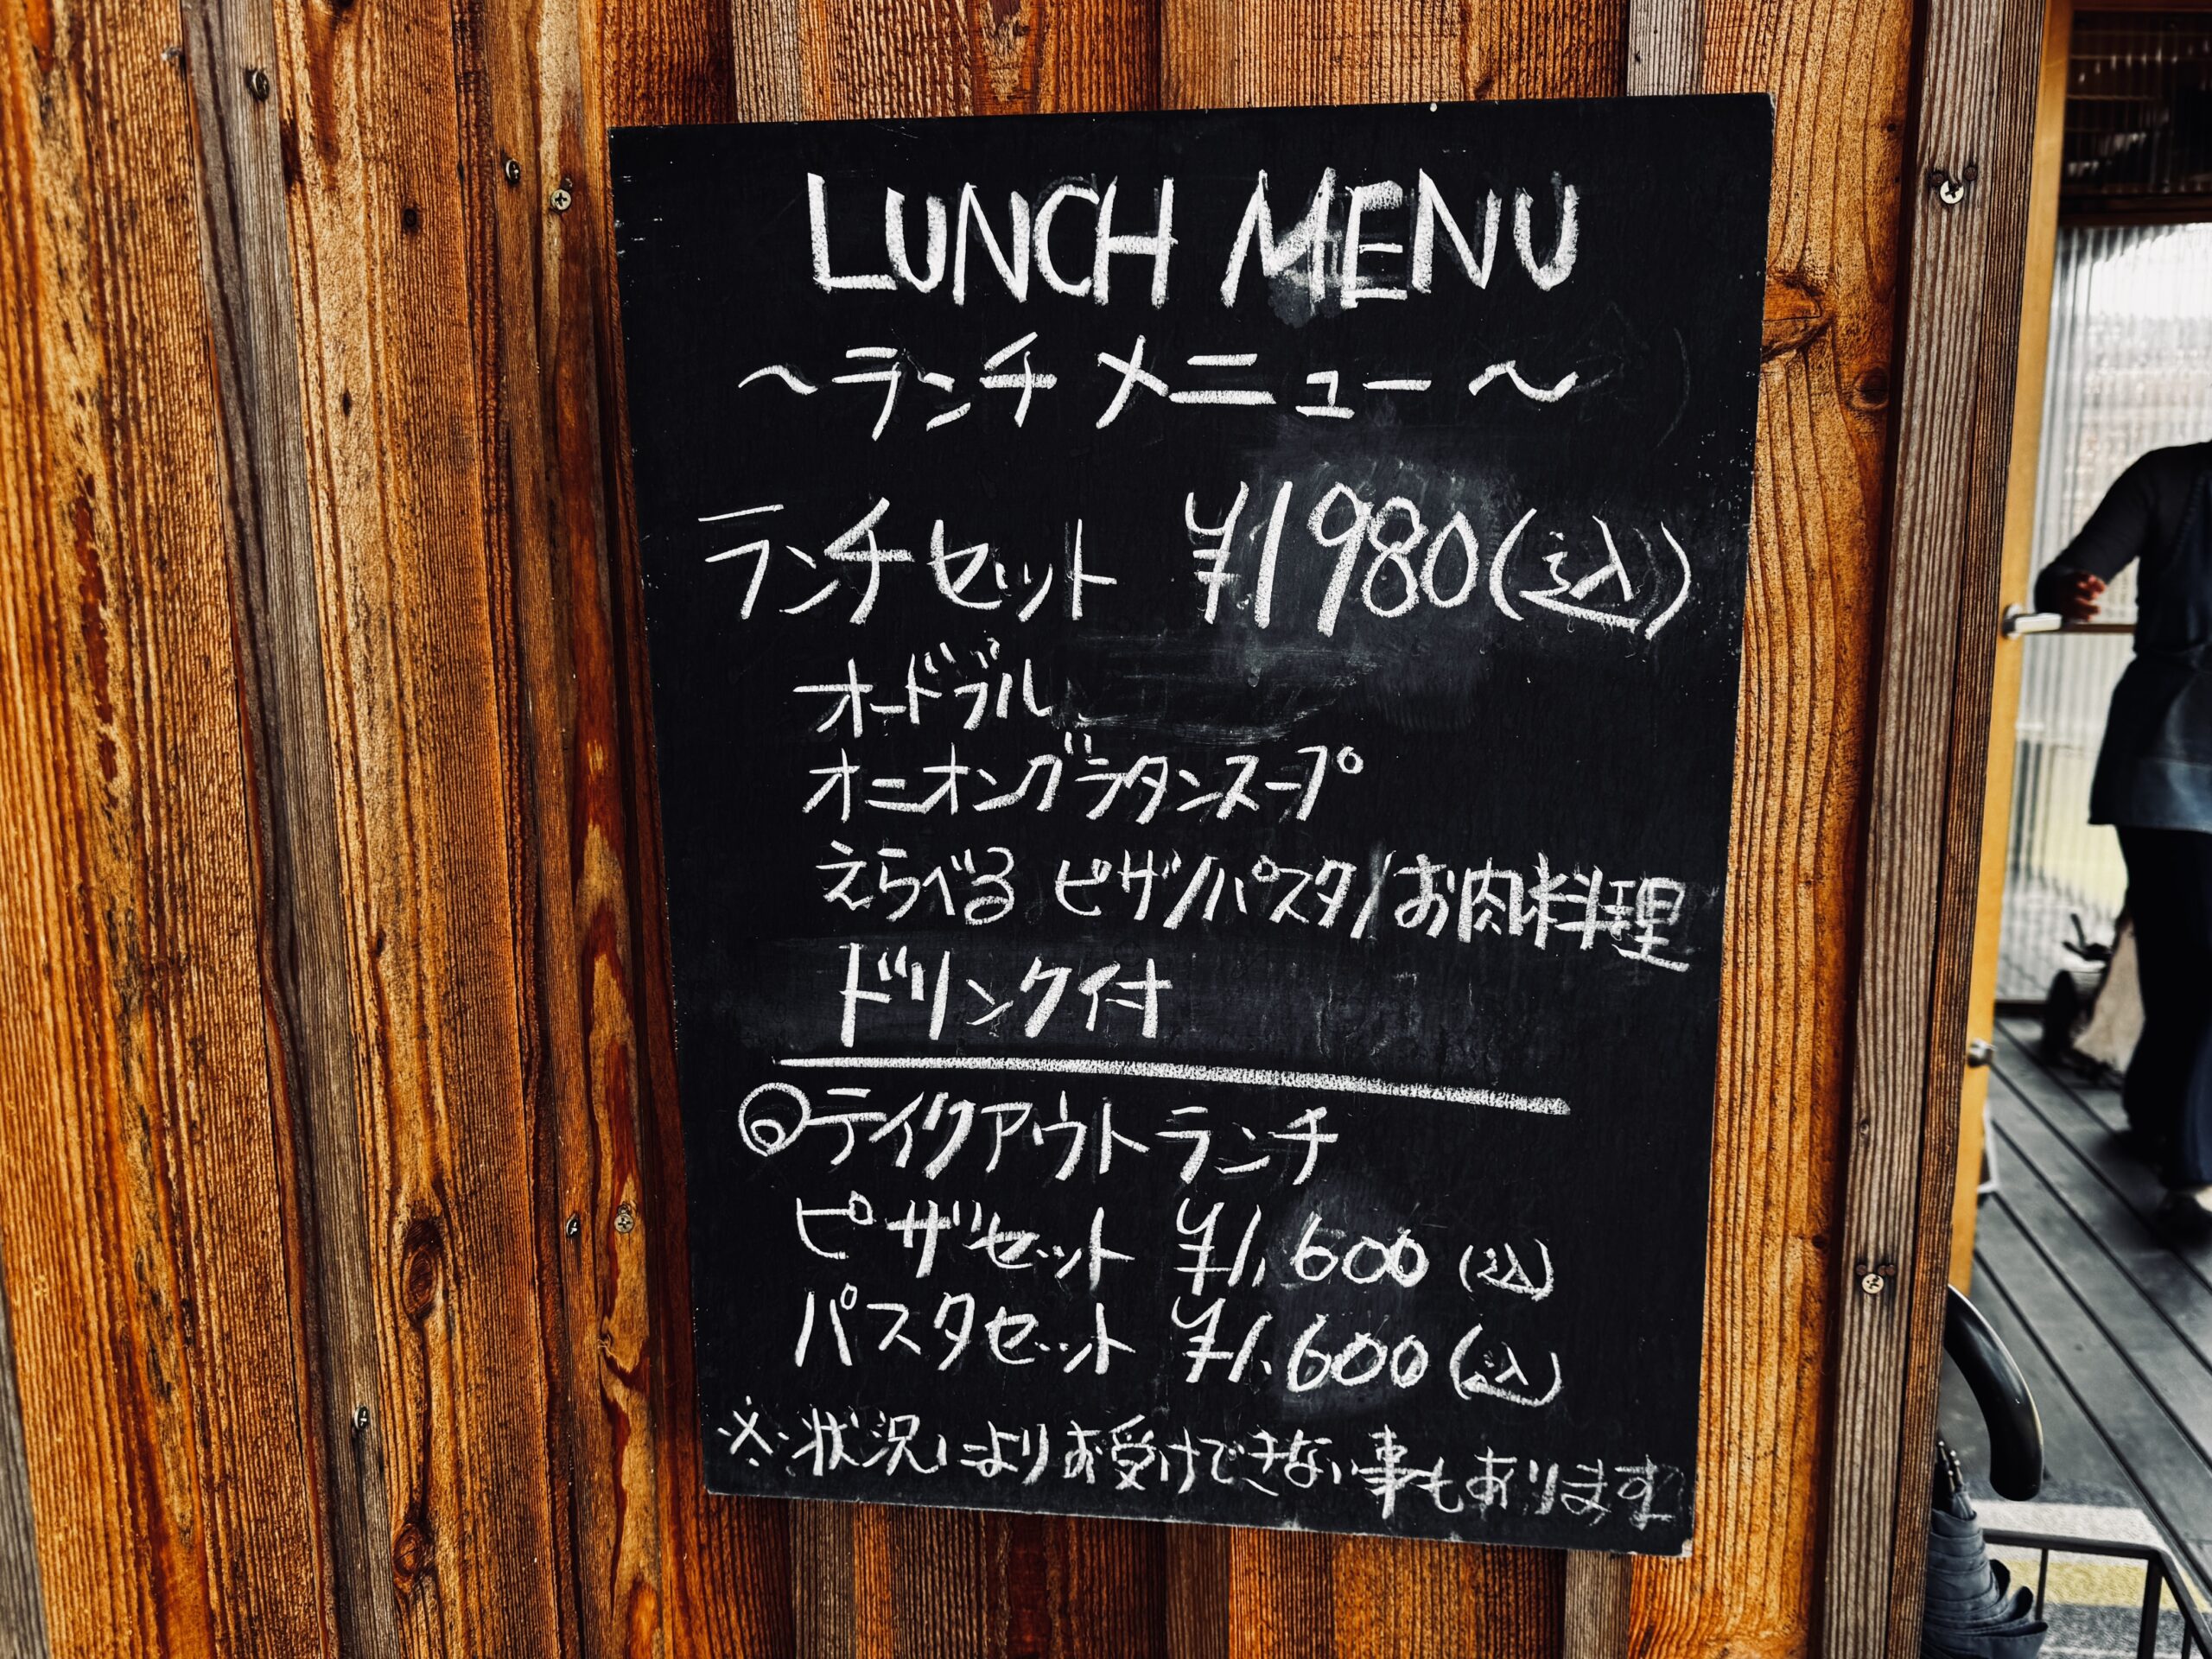 LUNCH MENU
～ランチメニュー～
ランチセット ¥1980(込)
オードブル
オニオングラタンスープ
えらべる ピザ/パスタ/お肉料理
ドリンク付
◎テイクアウトランチ
ピザセット ¥1,600(込)
パスタセット ¥1,600(込)
※状況によりお受けできない事もあります